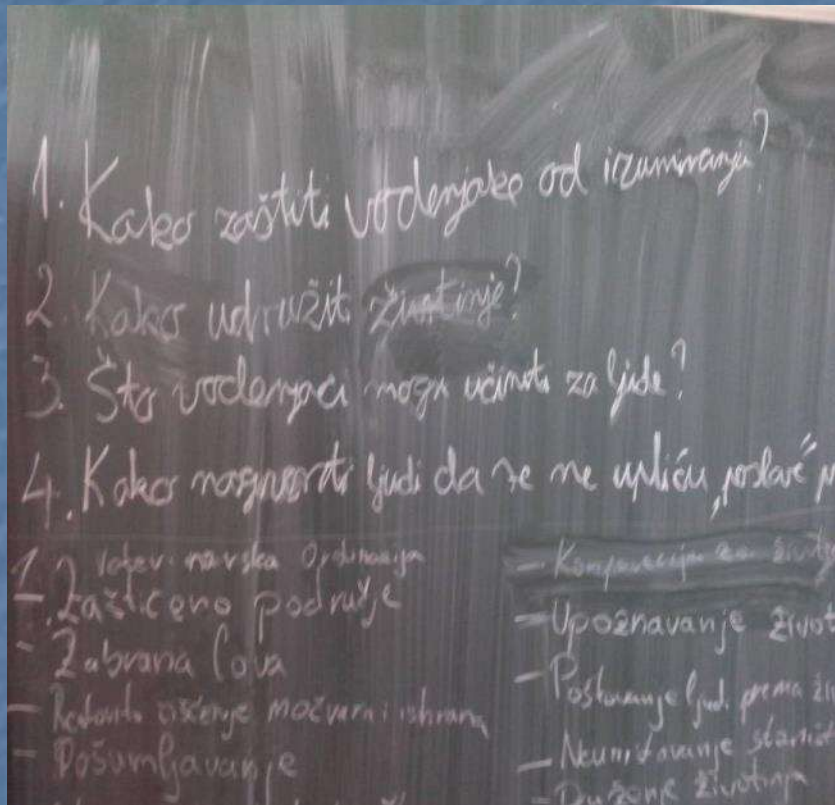 1. Kako zaštiti vodenjake od izumiranja?
2. Kako udružit životinje?
3. Što vodenjaci mogu učiniti za ljude?
4. Kako nagovoriti ljudi da se ne upliću „poslove"
1. Veterinarska Ordinacija
- Zaštićeno područje
- Zabrana lova
- Redovito čišćenje močvara i ishrana
- Pošumljavanje
- za
- Upoznavanje
- Poštovanje ljudi prema
- Neuništavanje
- Druženje životinja